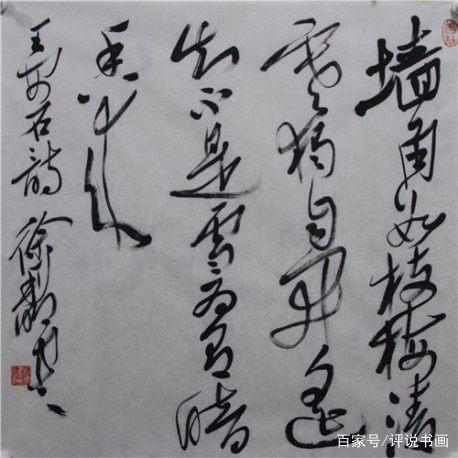 墙角数枝梅凌
寒独自开遥
知不是雪为有暗
香来
王安石诗 徐
百家号/评说书画